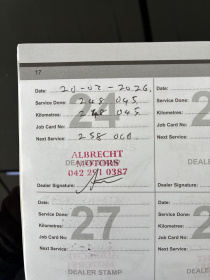 17
Date: 20-02-2026. Date:
24
Service Done: 248 045 Service Done:
Kilometres: 248 045 Kilometres:
Job Card No: Job Card No:
Next Service: 258 000 Next Service:
ALBRECHT
MOTORS
042 291 0387
DEALER STAMP
Dealer Signature: Dealer Signature:
Date:
27
Service Done: Service Done:
Kilometres: Kilometres:
Job Card No: Job Card No:
Next Service: Next Service:
DEALER STAMP